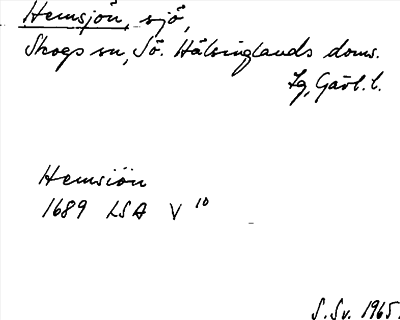 Hemsjön, sjö,
Skogs sn, Sö. Hälsinglands doms.
Lg, Gävl. l.
Hemsiön
1689 LSA V 10
S. Sv. 1965.